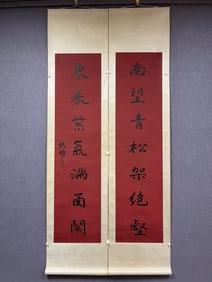 南望青松架绝壑
東来紫氣满函關